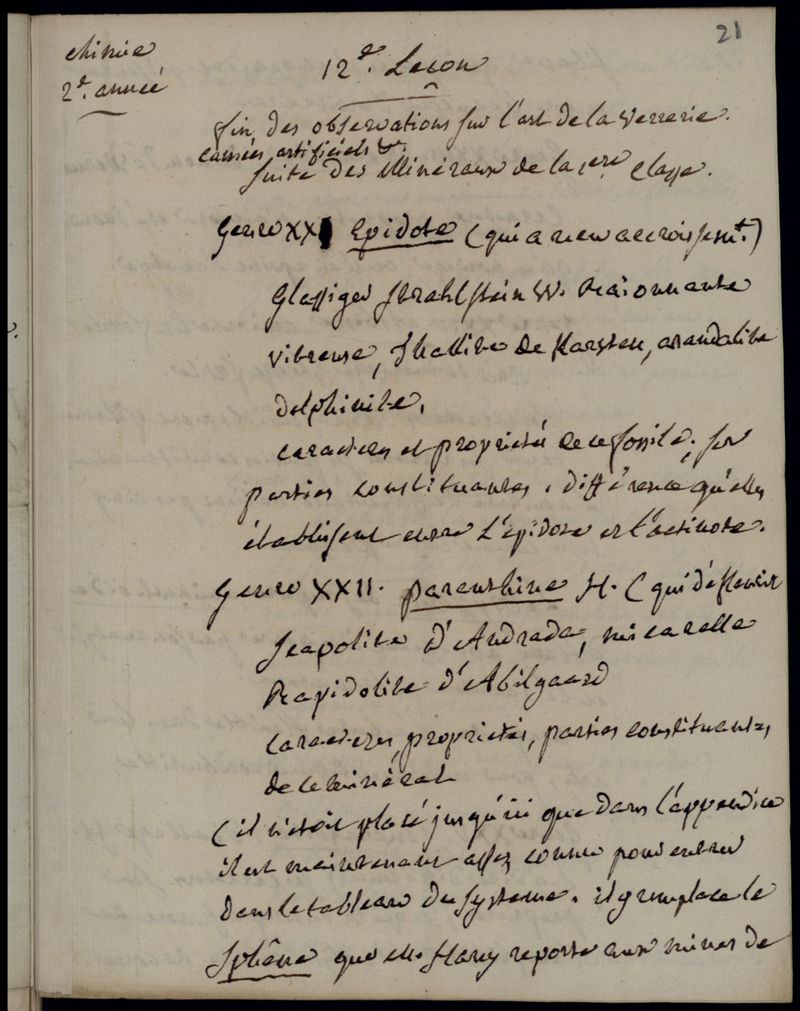 21
chimie
2de. année
12e. Lecon
fin des observations sur l'art de la verrerie.
camées artificiels &c.
suite des Minéraux de la 1ere Classe.
Genre XXI Epidote (qui a recu accroissemt.)
Glassiger Strahlstein W. Raionnante
vitreuse, thallite de Karsten, arendalite
delphinite.
caracteres et proprietés de ce fossile; ses
parties constituantes. différence qu'elles
établissent entre l'épidote et l'actinote.
Genre XXII. paranthine H. (qui défleurit
scapolite d'Andrada, micarelle
Rapidolite d'Abilgaard
caracteres, proprietés, parties constituantes
de ce minéral
(il n'étoit placé jusqu'ici que dans l'appendice
il est maintenant assez connu pour entrer
dans le tableau du systeme. il y remplace le
Sphêne que Mr. Hauy reporte aux mines de